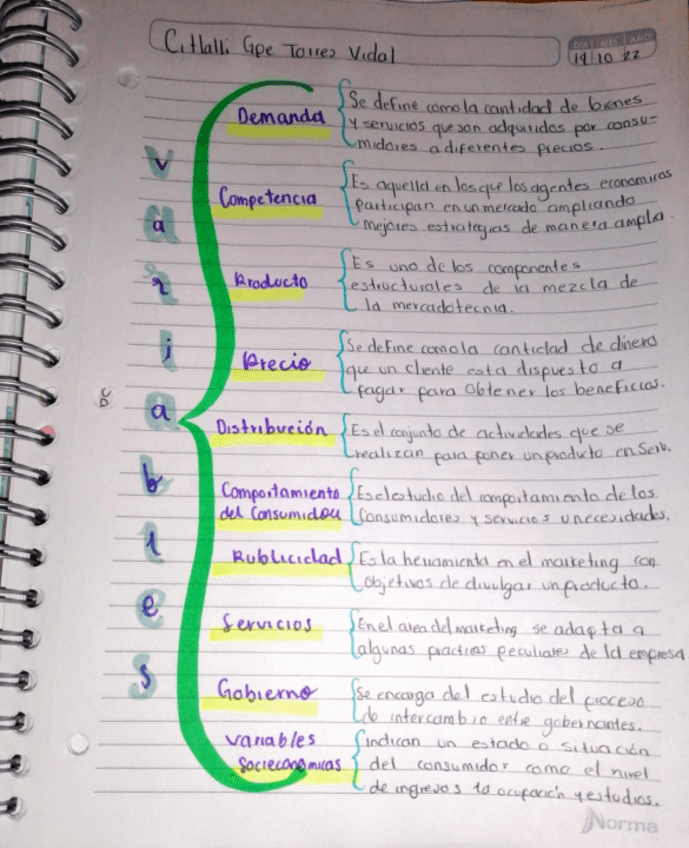 Citlalli Gpe Torres Vidal
DIA MES AÑO
19 10 22
Variables
DC
Demanda
Se define como la cantidad de bienes
y servicios que son adquiridos por consu-
midores a diferentes precios.
Competencia
Es aquella en los que los agentes economicos
participan en un mercado ampliando
mejores estrategias de manera amplia.
Producto
Es uno de los componentes
estructurales de la mezcla de
la mercadotecnia.
Precio
Se define como la cantidad de dinero
que un cliente esta dispuesto a
pagar para obtener los beneficios.
Distribución
Es el conjunto de actividades que se
realizan para poner un producto en Serv.
Comportamiento
del Consumidor
Es el estudio del comportamiento de los
Consumidores y servicios o necesidades.
Publicidad
Es la herramienta en el marketing con
Objetivos de divulgar un producto.
Servicios
En el area del marketing se adapta a
algunas practicas peculiares de la empresa
Gobierno
Se encarga del estudio del proceso
de intercambio entre gobernantes.
Variables
Socieconomicas
indican un estado o situación
del consumidor como el nivel
de ingresos la ocupación y estudios.
Norma